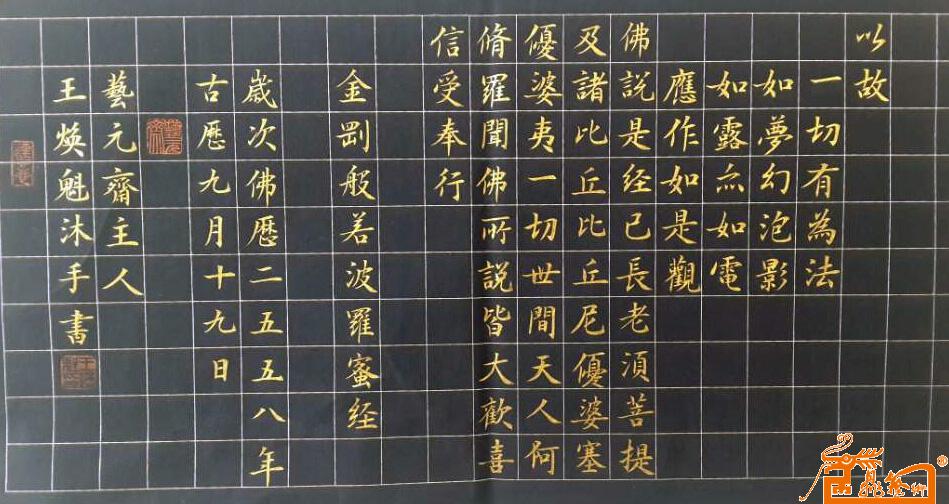 以故
一切有為法
如夢幻泡影
如露亦如電
應作如是觀
佛說是经已長老須菩提
及諸比丘比丘尼優婆塞
優婆夷一切世間天人阿
脩羅聞佛所說皆大歡喜
信受奉行
金剛般若波羅蜜经
嵗次佛歷二五五八年
古歷九月十九日
藝元齋主人
王煥魁沐手書